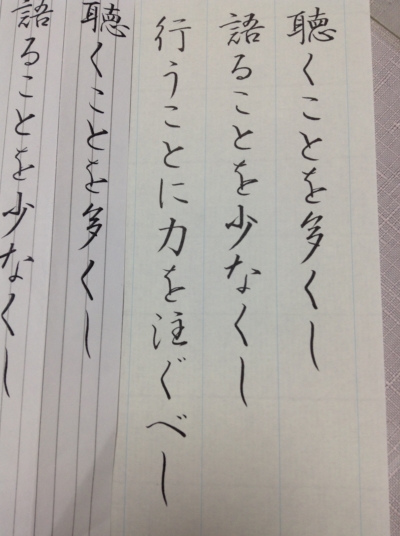 聴くことを多くし
語ることを少なくし
行うことに力を注ぐべし
聴くことを多くし
語ることを少なくし